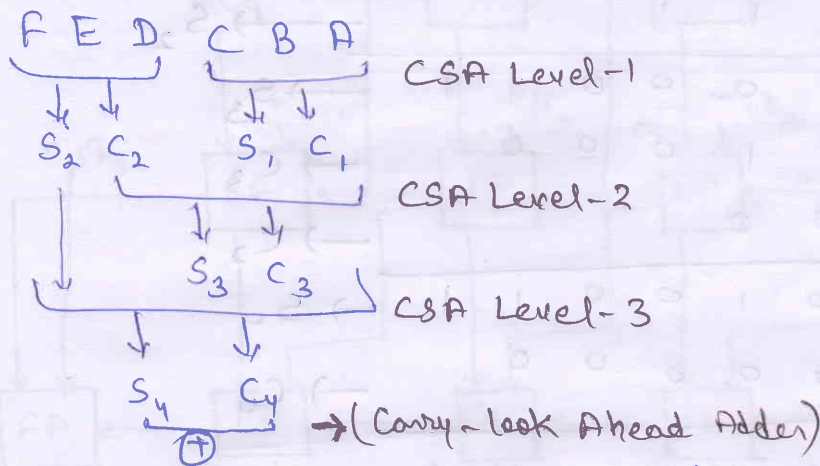 F E D C B A CSA Level-1
S₂ C₂ S₁ C₁
CSA Level-2
S₃ C₃
CSA Level-3
S₄ C₄ → (Carry-look Ahead Adder)
+